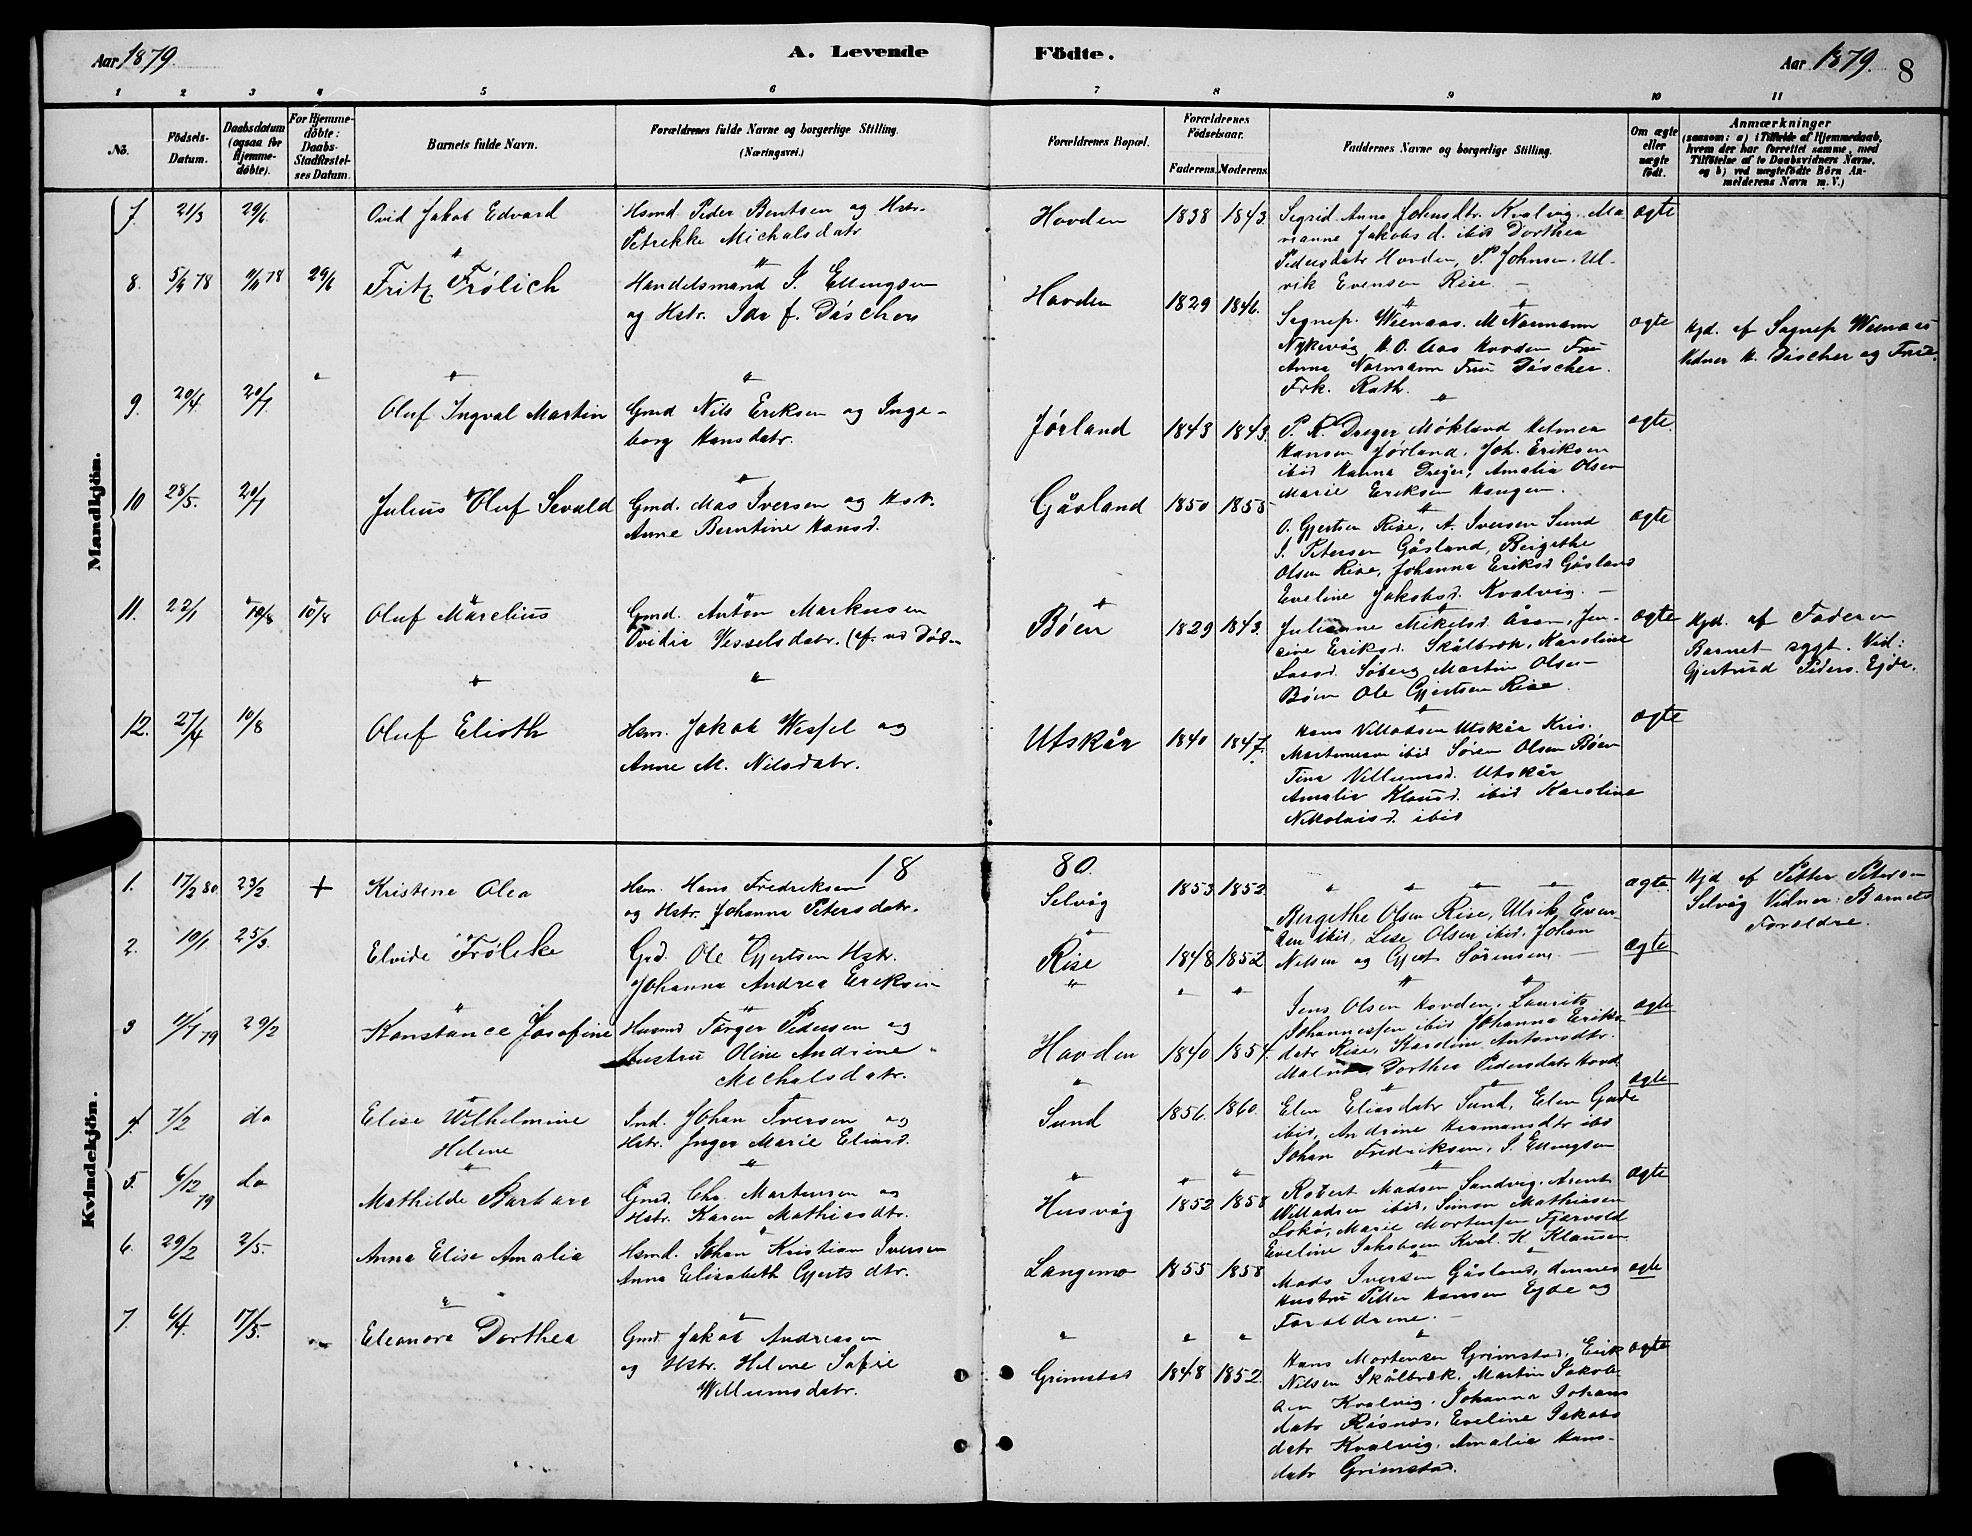 Aar 1879. A. Levende Födte. Aar 1879. 8
1 2 3 4 5 6 7 8 9 10 11
No. Födsels-Datum. Daabsdatum (ogsaa for Hjemmedöbte). For Hjemmedöbte: Daabs-Stadfæstelses Datum. Barnets fulde Navn. Forældrenes fulde Navne og borgerlige Stilling. (Næringsvei.) Forældrenes Bopæl. Forældrenes Födselsaar. Faderens. Moderens. Faddernes Navne og borgerlige Stilling. Om ægte eller uægte födt. Anmærkninger (saasom: a) i Tilfælde af Hjemmedaab, hvem der har forrettet samme, med Tilföielse af to Daabsvidners Navne, og b) ved uægtefödte Börn Anmelderens Navn m. V.)
Mandkjön.
7. 21/3 29/6 Ovid Jakob Edvard
Hsmd. Peder Bentsen og Hstr.
Petrikke Michalsdatr
Hovden 1838 1843.
Segrid Anna Johnsdtr. Kvalvig. Ma-
rianne Jakobsd. ibid Dorthea
Pedersdatr Hovden, P. Johnsen. Ul-
rik Evensen Rise. –
ægte
8. 5/9 78 9/11 78 29/6 Fritz Frölich
Handelsmand I. Ellingsen
og Hstr. Ida f. Döscher
Hovden 1829 1846.
Sognep. Weenaas. M Normann
Nykvåg H. O. Aas Hovden Fru
Anna Normann Fru Döscher.
Frk. Rath.
ægte
Hjd. af Sognep Weenaas
Vidner H. Döscher og Frue.
9. 20/4 20/7 Oluf Ingval Martin
Gmd Nils Eriksen og Inge-
borg Hansdatr.
Jörland 1843 1843.
P. K. Dreyer Mökland Helmea
Hansen Jörland, Joh. Eriksen
ibid Hanna Dreyer, Amalia Olsen
Marie Eriksen Haugen.
ægte.
10 28/5. 20/7 Julius Oluf Sevald
Gmd. Mas Iversen og Hstr.
Anne Berntine Hansd.
Gåsland 1850 1855
O. Gjertsen Rise, A. Iversen Sund
I. Petersen Gåsland, Bergethe
Olsen Rise, Johanna Eriksd Gåsland
Eveline Jakobsd. Kvalvig. –
ægte
11. 22/1 10/8 10/8 Oluf Marelius
Gmd. Anton Markusen
Ovidia Vesselsdatr.
Böen 1829 1843.
Julianne Mikelsd Åsen, Jen-
sine Eriksd. Skålbrok, Karoline
Larsd. Söberg Martin Olsen
Böen Ole Gjertsen Rise.
ægte
Hjd. af Faderen
Barnet sygt. Vid:
Gjertrud Peders. Ejde.
12. 27/4 10/8 Oluf Elioth
Hsm. Jakob Wessel og
Anne M. Nilsdatr.
Utskår 1840 1847.
Hans Villadsen Utskår Kris.
Martinusen ibid Sören Olsen Böen
Tina Villumsd. Utskår
Amalie Klausd. ibid Karoline
Nikolaisd. ibid
ægte
1880.
Kvindekjön.
1. 17/2 80 23/2 + Kristine Olea
Hsm. Hans Fredriksen
og Hstr. Johanna Petersdatr.
Selvåg 1853 1852.
ægte.
Hjd af Petter Peters-
Selvåg Vidner: Barnets
Foreldre.
2. 10/1 25/3. Elvide Frölike
Grd. Ole Gjertsen Hstr.
Johanna Andrea Eriksen
Rise 1848 1852
Bergethe Olsen Rise, Ulrik Even-
sen ibid, Lise Olsen ibid, Johan
Nilsen og Gjert Sörensen. –
ægte
3 11/7 79 29/2 Konstance Josefine
Husmd Törger Pedersen og
Hustru Oline Andrine
Michalsdatr.
Hovden 1840 1854.
Jens Olsen Hovden, Laurits
Johannessen ibid Johanna Eriks-
datr Rise, Karoline Antonsdtr.
Malnes, Dorthea Pedersdatr Hovd.
ægte
4. 7/2 do Elise Wilhelmine
Helene
Ind. Johan Iversen og
Hstr. Inger Marie Eliasd.
Sund 1856. 1860.
Elen Eliasdatr Sund, Elen Gade
ibid, Andrine Hermansdtr ibd
Johan Fredriksen, I. Ellingsen
ægte
5. 6/12 79 do Mathilde Barbara
Gmd. Chr. Martinsen og
Hstr. Karen Mathiasdtr.
Husvåg 1852 1858
Robert Madsen Sandvig, Arent
Willadsen ibid, Simon Mathiasen
Lokör, Marie Mortensen Fjærvold
Eveline Jakobsen Kval. K. Klausen
ægte
6. 29/2 2/5. Anna Elise Amalia
Hsmd. Johan Kristian Iversen
Anna Elisabeth Gjertsdtr.
Langemo 1855 1858
Mads Iversen Gåsland, dennes
Hustru Petter Hansen Ejde og
Foreldrene. –
ægte
7. 6/4. 17/5. Eleonora Dorthea
Gmd. Jakob Andreasen
og Hstr. Helene Sofie
Willumsdatr.
Grimstad 1848 1852.
Hans Mortensen Grimstad, Erik
Nilsen Skålbrek, Martin Jakob-
sen Kvalvig, Johanna Johans
datr Risnes, Eveline Jakobs
datr Kvalvig, Amalia Hans-
datr Grimstad.
ægte